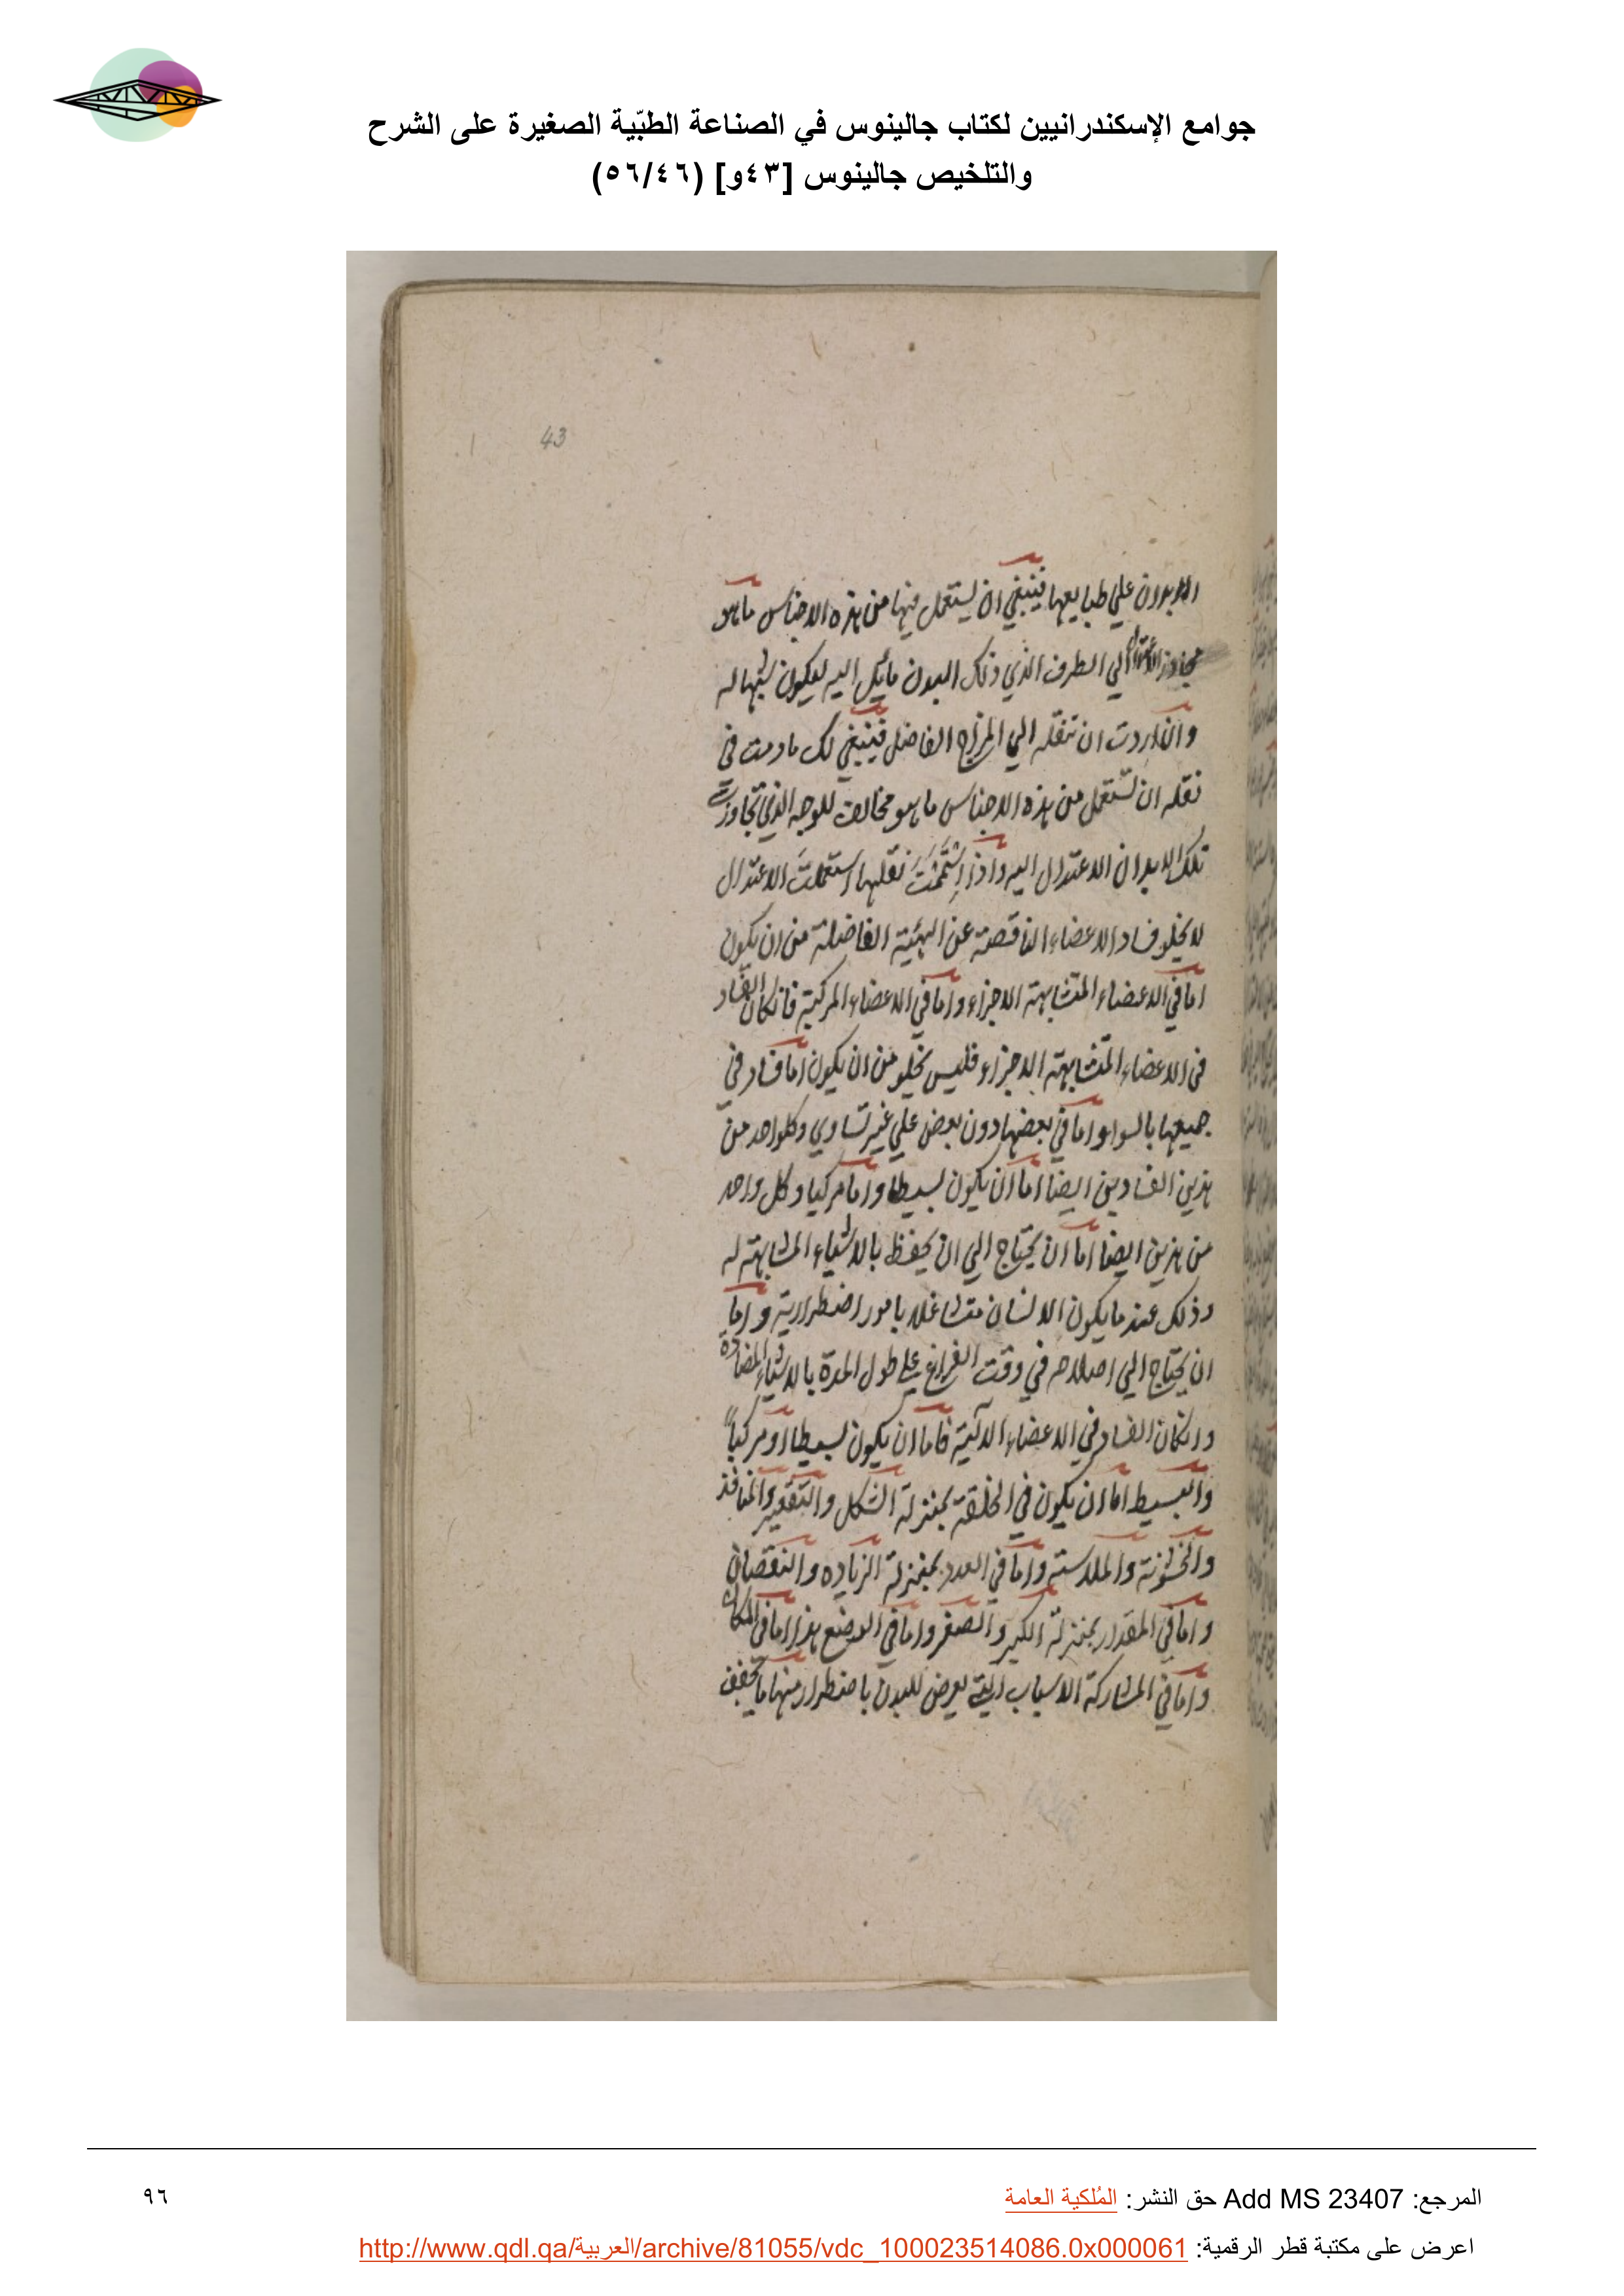 جوامع الإسكندرانيين لكتاب جالينوس في الصناعة الطبّية الصغيرة على الشرح
والتلخيص جالينوس [٤٣و] (٥٦/٤٦)
43
الابدان علي طبايعها فينبغي ان يستعمل فيها من هذه الاجناس ماهو
مجاوز الي الطرف الذي ذلك البدن مايل اليه ليكون شبيها له
وان اردت ان تنقله الي المزاج الفاضل فينبغي لك مادمت في
نقله ان تستعمل من هذه الاجناس ماهو مخالف للوجه الذي تجاوزت
تلك الابدان الاعتدال اليه واذا استتممت نقلها استعملت الاعتدال
لا يخلو فساد الاعضاء الناقصة عن الهيئية الفاضلة من ان يكون
اما في الاعضاء المتشابهة الاجزاء واما في الاعضاء المركبة فانكان الفساد
في الاعضاء المتشابهة الاجزاء فليس يخلو من ان يكون اما فساد في
جميعها بالسواء واما في بعضها دون بعض علي غير تساوي وكلواحد من
هذين الفسادين ايضا اما ان يكون بسيطا واما مركبا وكل واحد
من هذين ايضا اما ان يحتاج الي ان يحفظ بالاشياء المشابهة له
وذلك عند ما يكون الانسان متشاغلا بامور اضطرارية واما
ان يحتاج الي اصلاح في وقت الفراغ علي طول المدة بالاشياء المضادة
وانكان الفساد في الاعضاء الآلية فاما ان يكون بسيطا او مركباً
والبسيط اما ان يكون في الخلقة بمنزلة الشكل والتقعير والمنافذ
والخشونة والملاسته واما في العدد بمنزلة الزياده والنقصان
واما في المقدار بمنزلة الكبر والصغر واما في الوضع هذا اما في المكان
واما في المشاركة الاسباب التي تعرض للبدن باضطرار منها ما يجفف
المرجع: Add MS 23407 حق النشر: المُلكية العامة
٩٦
اعرض على مكتبة قطر الرقمية: http://www.qdl.qa/العربية/archive/81055/vdc_100023514086.0x000061